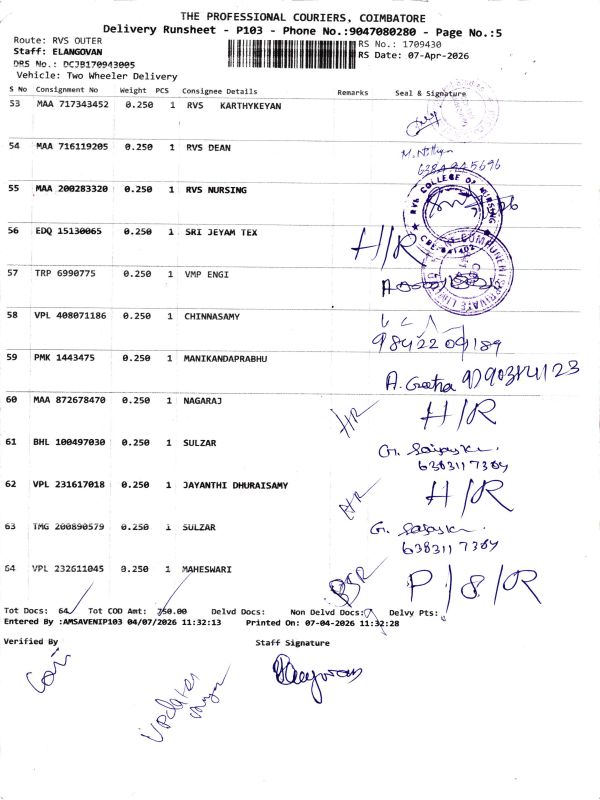 THE PROFESSIONAL COURIERS, COIMBATORE
Delivery Runsheet - P103 - Phone No.:9047080280 - Page No.:5
Route: RVS OUTER
RS No.: 1709430
Staff: ELANGOVAN
RS Date: 07-Apr-2026
DRS No.: DCJB170943005
Vehicle: Two Wheeler Delivery
S No Consignment No Weight PCS Consignee Details Remarks Seal & Signature
53 MAA 717343452 0.250 1 RVS KARTHYKEYAN
54 MAA 716119205 0.250 1 RVS DEAN
55 MAA 200283320 0.250 1 RVS NURSING
RVS COLLEGE OF NURSING
56 EDQ 15130065 0.250 1 SRI JEYAM TEX H/R
57 TRP 6990775 0.250 1 VMP ENGI
58 VPL 408071186 0.250 1 CHINNASAMY
9842209189
59 PMK 1443475 0.250 1 MANIKANDAPRABHU
A. Geetha
60 MAA 872678470 0.250 1 NAGARAJ HR H/R
61 BHL 100497030 0.250 1 SULZAR
6383117384
62 VPL 231617018 0.250 1 JAYANTHI DHURAISAMY HR H/R
63 TMG 200890579 0.250 1 SULZAR
6383117384
64 VPL 232611045 0.250 1 MAHESWARI P/8/R
Tot Docs: 64 Tot COD Amt: 750.00 Delvd Docs: Non Delvd Docs: Delvy Pts:
Entered By :AMSAVENIP103 04/07/2026 11:32:13 Printed On: 07-04-2026 11:32:28
Verified By Staff Signature